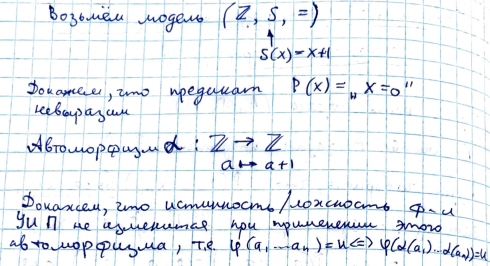 Возьмём модель (ℤ, S, =)
S(x) = x+1
Докажем, что предикат P(x) = „x = 0"
невыразим
Автоморфизм α : ℤ → ℤ
a ↦ a+1
Докажем, что истинность/ложность ф-л
УИП не изменится при применении этого
автоморфизма, т.е. φ(a₁...aₙ) = и <=> φ(α(a₁)...α(aₙ)) = и